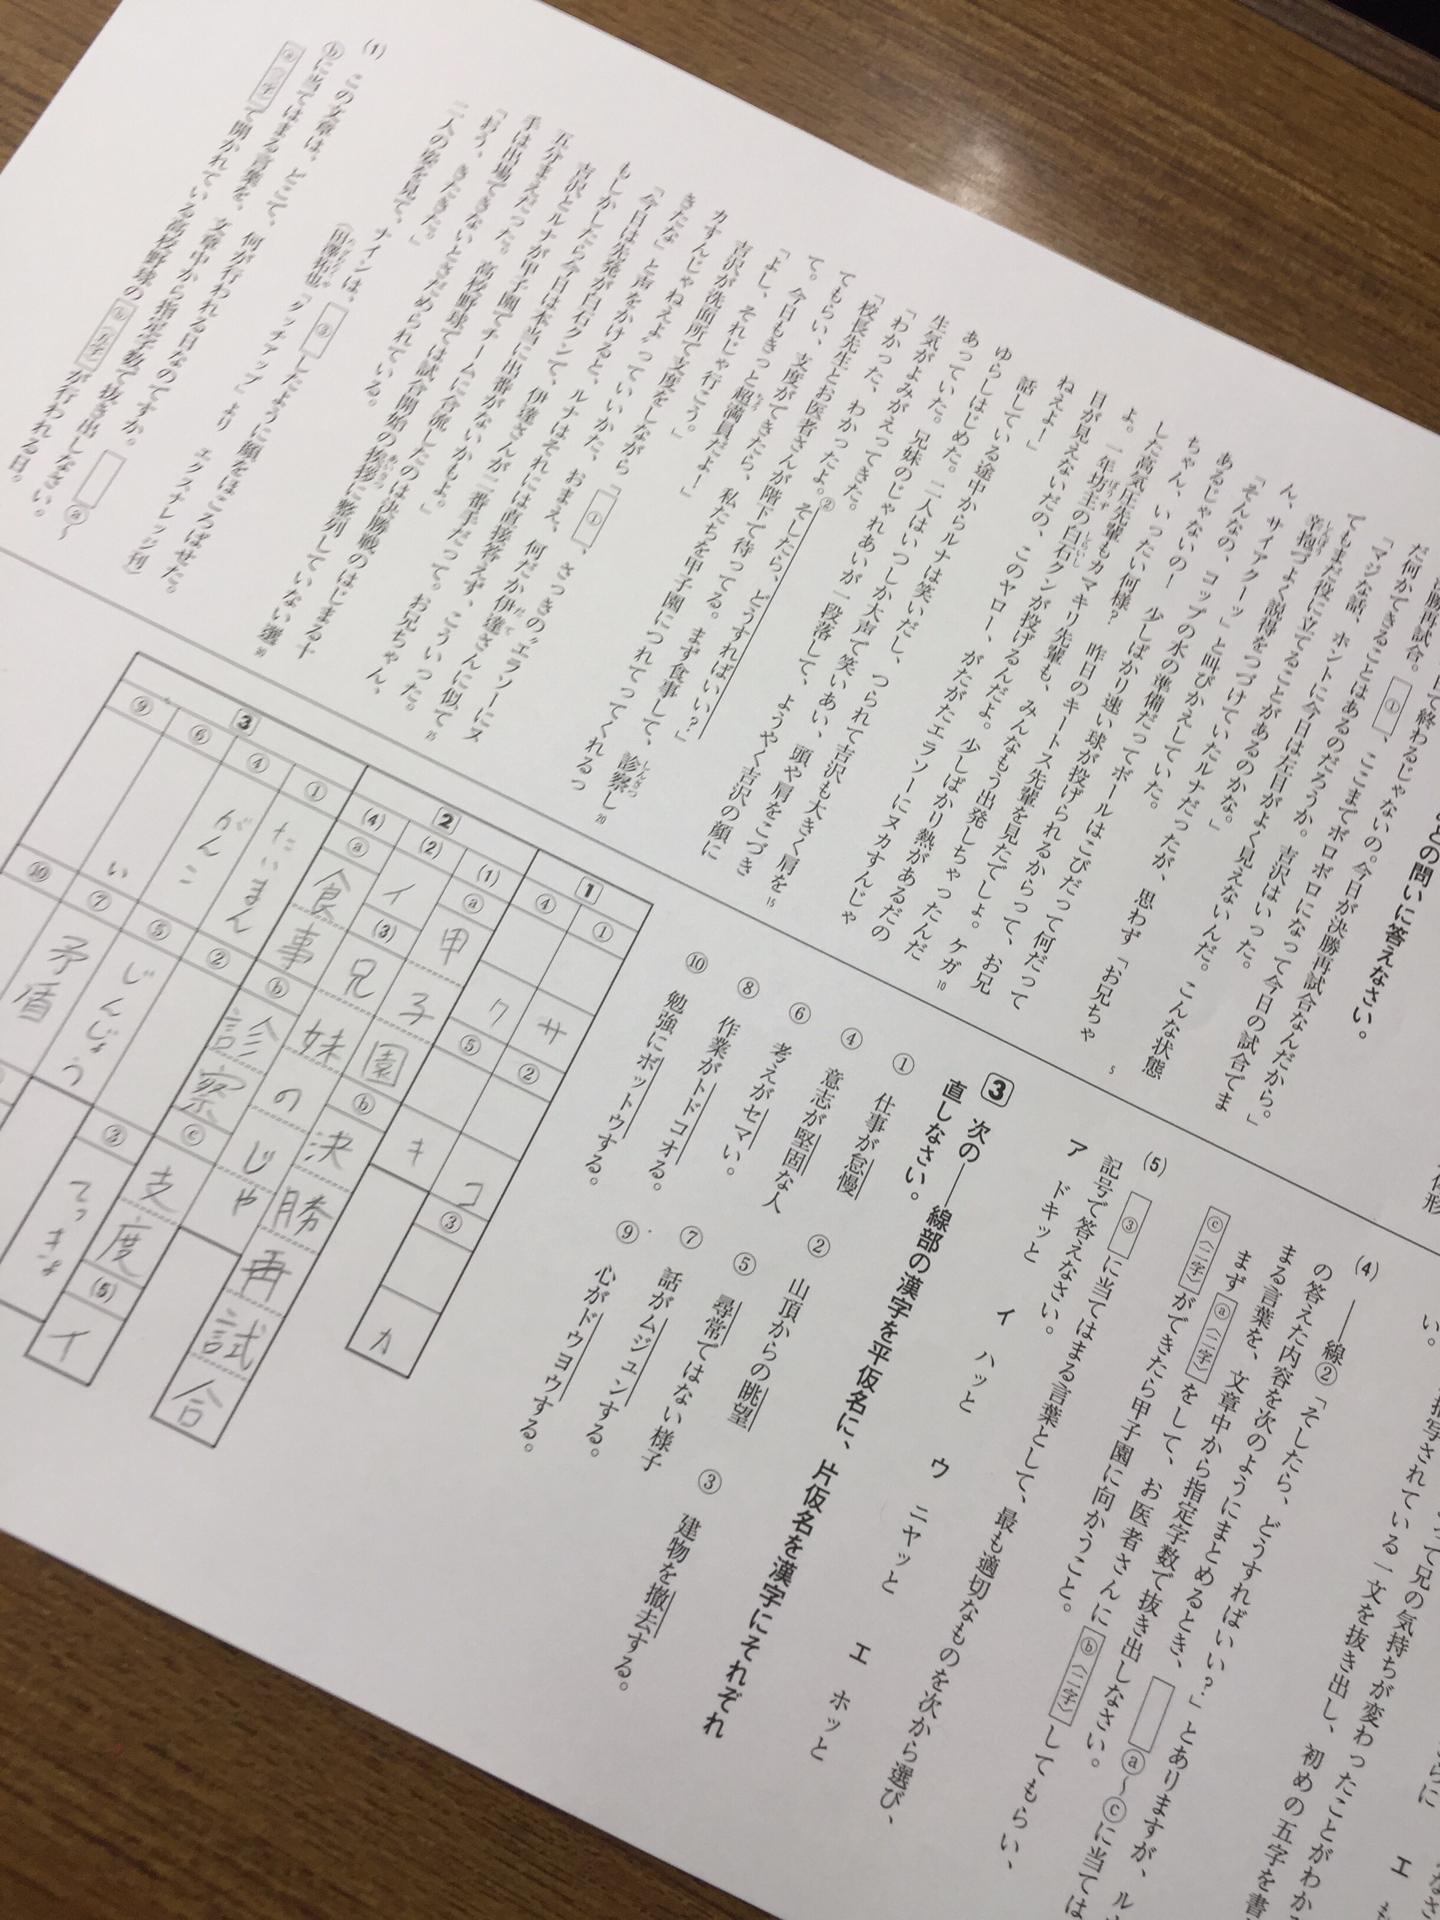 との問いに答えなさい。
だ何かできることはあるのだろうか。吉沢はいった。
「マジな話、ホントに今日は左目がよく見えないんだ。こんな状態
てもまだ役に立てることがあるのかな。」
辛抱づよく説得をつづけていたルナだったが、思わず「お兄ちゃ
ん、サイアクーッ」と叫びかえしていた。
「そんなの、コップの水の準備だってボールはこびだって何だって
あるじゃないの!　少しばかり速い球が投げられるからって、お兄
ちゃん、いったい何様?　昨日のキートス先輩を見たでしょ。ケガ
した高気圧先輩もカマキリ先輩も、みんなもう出発しちゃったんだ
よ。一年坊主の白石クンが投げるんだよ。少しばかり熱があるだの
目が見えないだの、このヤロー、がたがたエラソーにヌカすんじゃ
ねえよ!」
話している途中からルナは笑いだし、つられて吉沢も大きく肩を
ゆらしはじめた。二人はいつしか大声で笑いあい、頭や肩をこづき
あっていた。兄妹のじゃれあいが一段落して、ようやく吉沢の顔に
生気がよみがえってきた。
「わかった、わかったよ。②そしたら、どうすればいい?」
「校長先生とお医者さんが階下で待ってる。まず食事して、診察し
てもらい、支度ができたら、私たちを甲子園につれてってくれるっ
て。今日もきっと超満員だよ!」
「よし、それじゃ行こう。」
吉沢が洗面所で支度をしながら「①、さっきの〝エラソーにヌ
カすんじゃねえよ〟っていいかた、おまえ、何だか伊達さんに似て
きたな」と声をかけると、ルナはそれには直接答えず、こういった。
「今日は先発が白石クンで、伊達さんが二番手だって。お兄ちゃん、
もしかしたら今日は本当に出番がないかもよ。」
吉沢とルナが甲子園でチームに合流したのは決勝戦のはじまる十
五分まえだった。高校野球では試合開始の挨拶に整列していない選
手は出場できないときだめられている。
「おう、きたきた。」
二人の姿を見て、ナインは、③したように顔をほころばせた。
(田澤拓也「タッチアップ」より　エクスナレッジ刊)
(1)　この文章は、どこで、何が行われる日なのですか。ⓐ〜
ⓑに当てはまる言葉を、文章中から指定字数で抜き出しなさい。
ⓐ〈三字〉で開かれている高校野球のⓑ〈五字〉が行われる日。
(4)　――線②「そしたら、どうすればいい?」とありますが、ル
の答えた内容を次のようにまとめるとき、ⓐ〜ⓒに当ては
まる言葉を、文章中から指定字数で抜き出しなさい。
まずⓐ〈二字〉をして、お医者さんにⓑ〈二字〉してもらい、
ⓒ〈二字〉ができたら甲子園に向かうこと。
(5)　③に当てはまる言葉として、最も適切なものを次から選び、
記号で答えなさい。
ア　ドキッと　イ　ハッと　ウ　ニヤッと　エ　ホッと
3　次の――線部の漢字を平仮名に、片仮名を漢字にそれぞれ
直しなさい。
①　仕事が怠慢　②　山頂からの眺望　③　建物を撤去する。
④　意志が堅固な人　⑤　尋常ではない様子
⑥　考えがセマい。　⑦　話がムジュンする。
⑧　作業がトドコオる。　⑨　心がドウヨウする。
⑩　勉強にボットウする。
1　①　サ　②　コ　③　カ
④　ク　⑤　キ
2　(1)　ⓐ　甲子園　ⓑ　決勝再試合
(2)　イ　(3)　兄妹のじゃ
(4)　ⓐ　食事　ⓑ　診察　ⓒ　支度　(5)　イ
3　①　たいまん　②　③　てっきょ
④　がんこ　⑤　じんじょう
⑥　い　⑦　矛盾
⑨　⑩